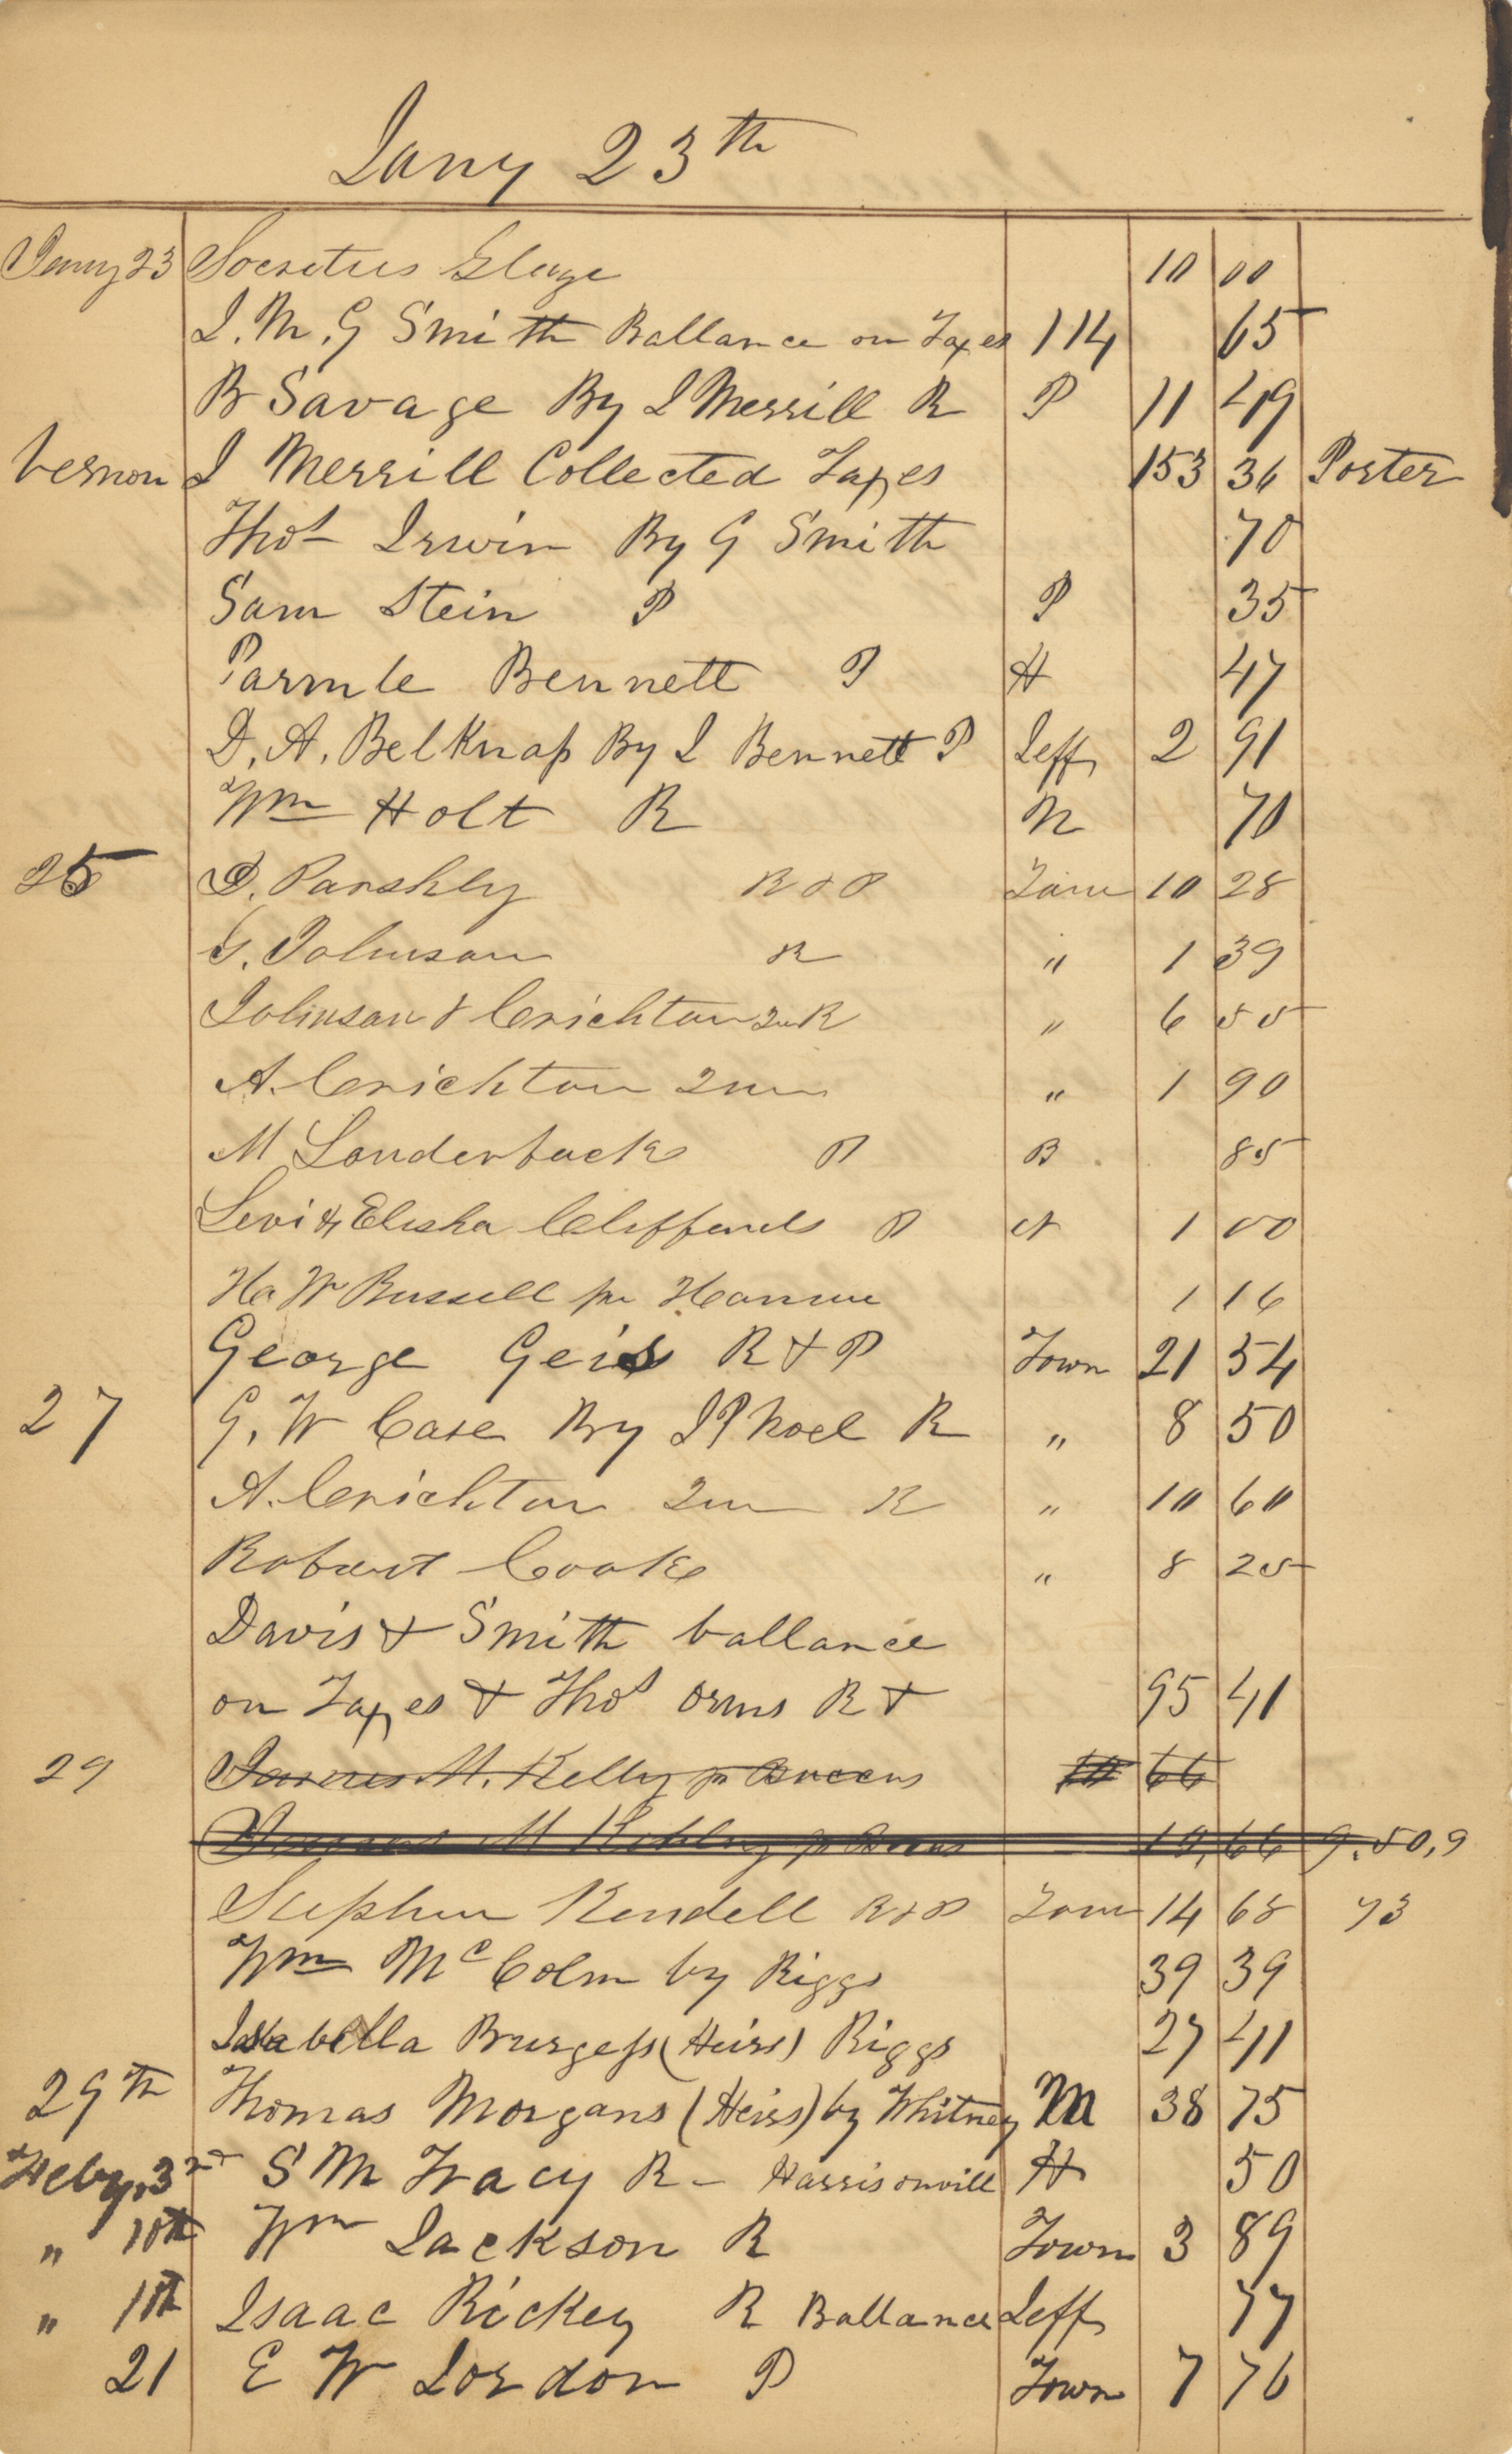 Jany 23th
Jany 23 Socrates Glaze 10 00
J. M. G Smith Ballance on Taxes 114 65
B Savage By J Merrill R P 11 49
Vernon J Merrill Collected Taxes 153 36 Porter
Thos Irwin By G Smith 70
Sam Stein P P 35
Parmle Bennett P H 47
D. A. Belknap By J Bennett P Jeff 2 91
Wm Holt R N 70
25 D. Parshley R & P Town 10 28
G. Johnson R " 1 39
Johnson & Crichton R " 6 55
A. Crichton " 1 90
M Louderback P B 85
Levi & Elisha Cliffords P N 1 00
W Russell pr 1 16
George Geis R & P Town 21 54
27 G. W Case By J P Noel R " 8 50
A. Crichton R " 10 60
Robert Cook " 8 25
Davis & Smith ballance
on Taxes & Thos Orms R & 95 41
29 James M. Kelley pr 10 66
James M Kelley pr 10,66 9.50,9
Stephen Kendell R & P Town 14 68 73
Wm McColm by Riggs 39 39
Isabella Burgess (Heirs) Riggs 27 41
29th Thomas Morgans (Heirs) by Whitney M 38 75
Feby, 3rd S M Tracy R - Harrisonvill H 50
" 10th Wm Jackson R Town 3 89
" 11th Isaac Rickey R Ballance Jeff 77
21 E W Jordon P Town 7 76